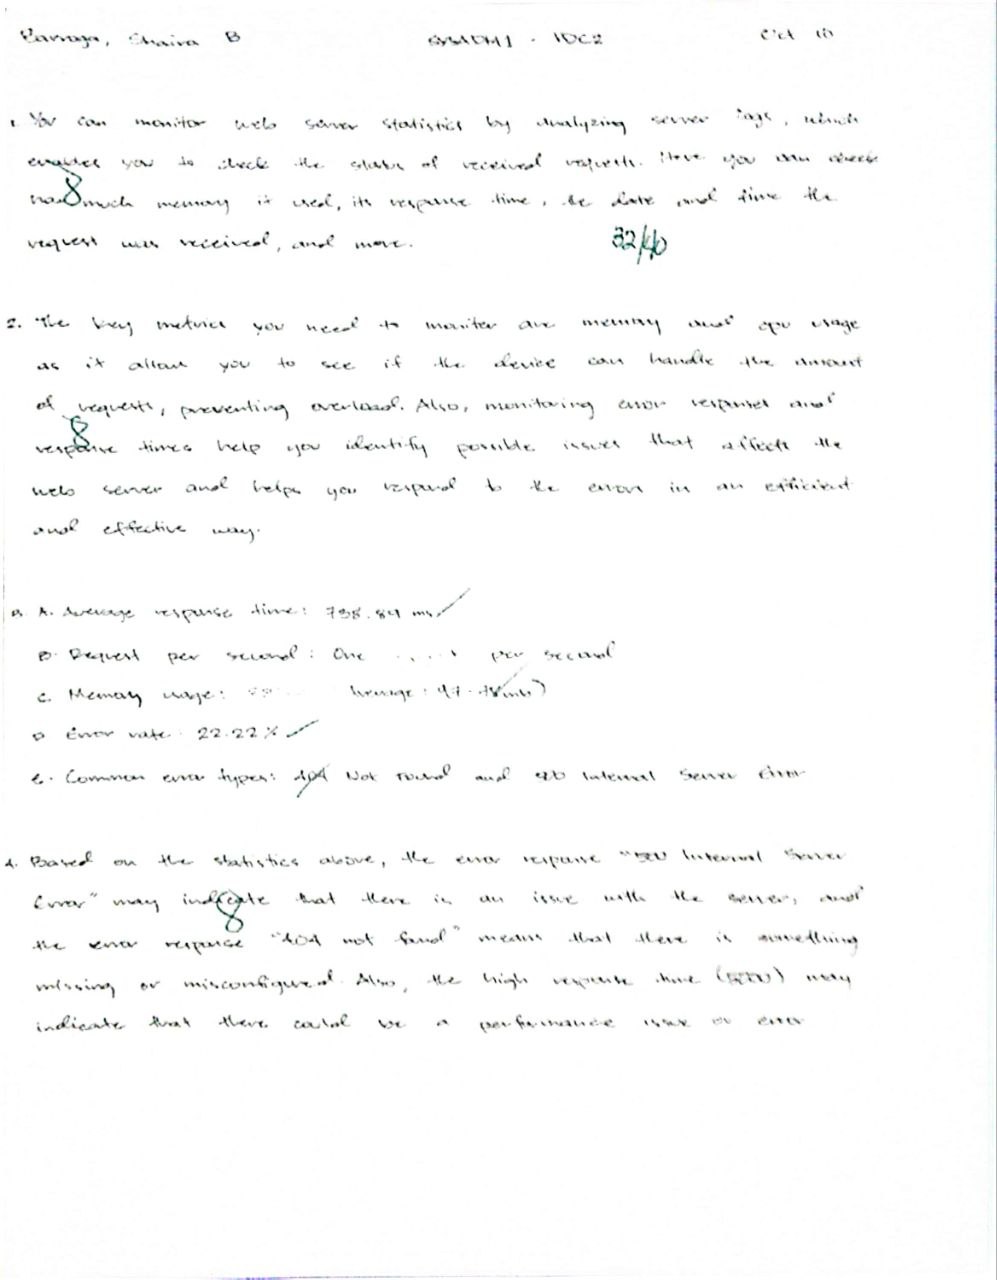 Shaira B SYSADM1 - IDC2 Oct 10
1. You can monitor web server statistics by analyzing server logs, which
enables you to check the status of received requests. Here you can check
how much memory it used, its response time, the date and time the
8
request was received, and more.
32/40
2. The key metrics you need to monitor are memory and cpu usage
as it allow you to see if the device can handle the amount
of requests, preventing overload. Also, monitoring error responses and
8
response times help you identify possible issues that affects the
web server and helps you respond to the errors in an efficient
and effective way.
3. A. Average response time: 738.89 ms
B. Request per second: One per second
C. Memory usage: 
D. Error rate: 22.22%
E. Common error types: 404 Not Found and 500 Internal Server Error
4. Based on the statistics above, the error response "500 Internal Server
Error" may indicate that there is an issue with the server, and
8
the error response "404 not found" means that there is something
missing or misconfigured. Also, the high response time may
indicate that there could be a performance issue or error